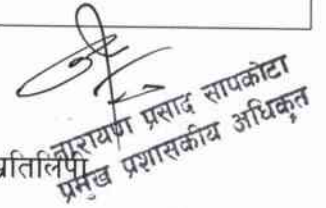 नारायण प्रसाद सापकोटा
प्रमुख प्रशासकीय अधिकृत
प्रतिलिपी